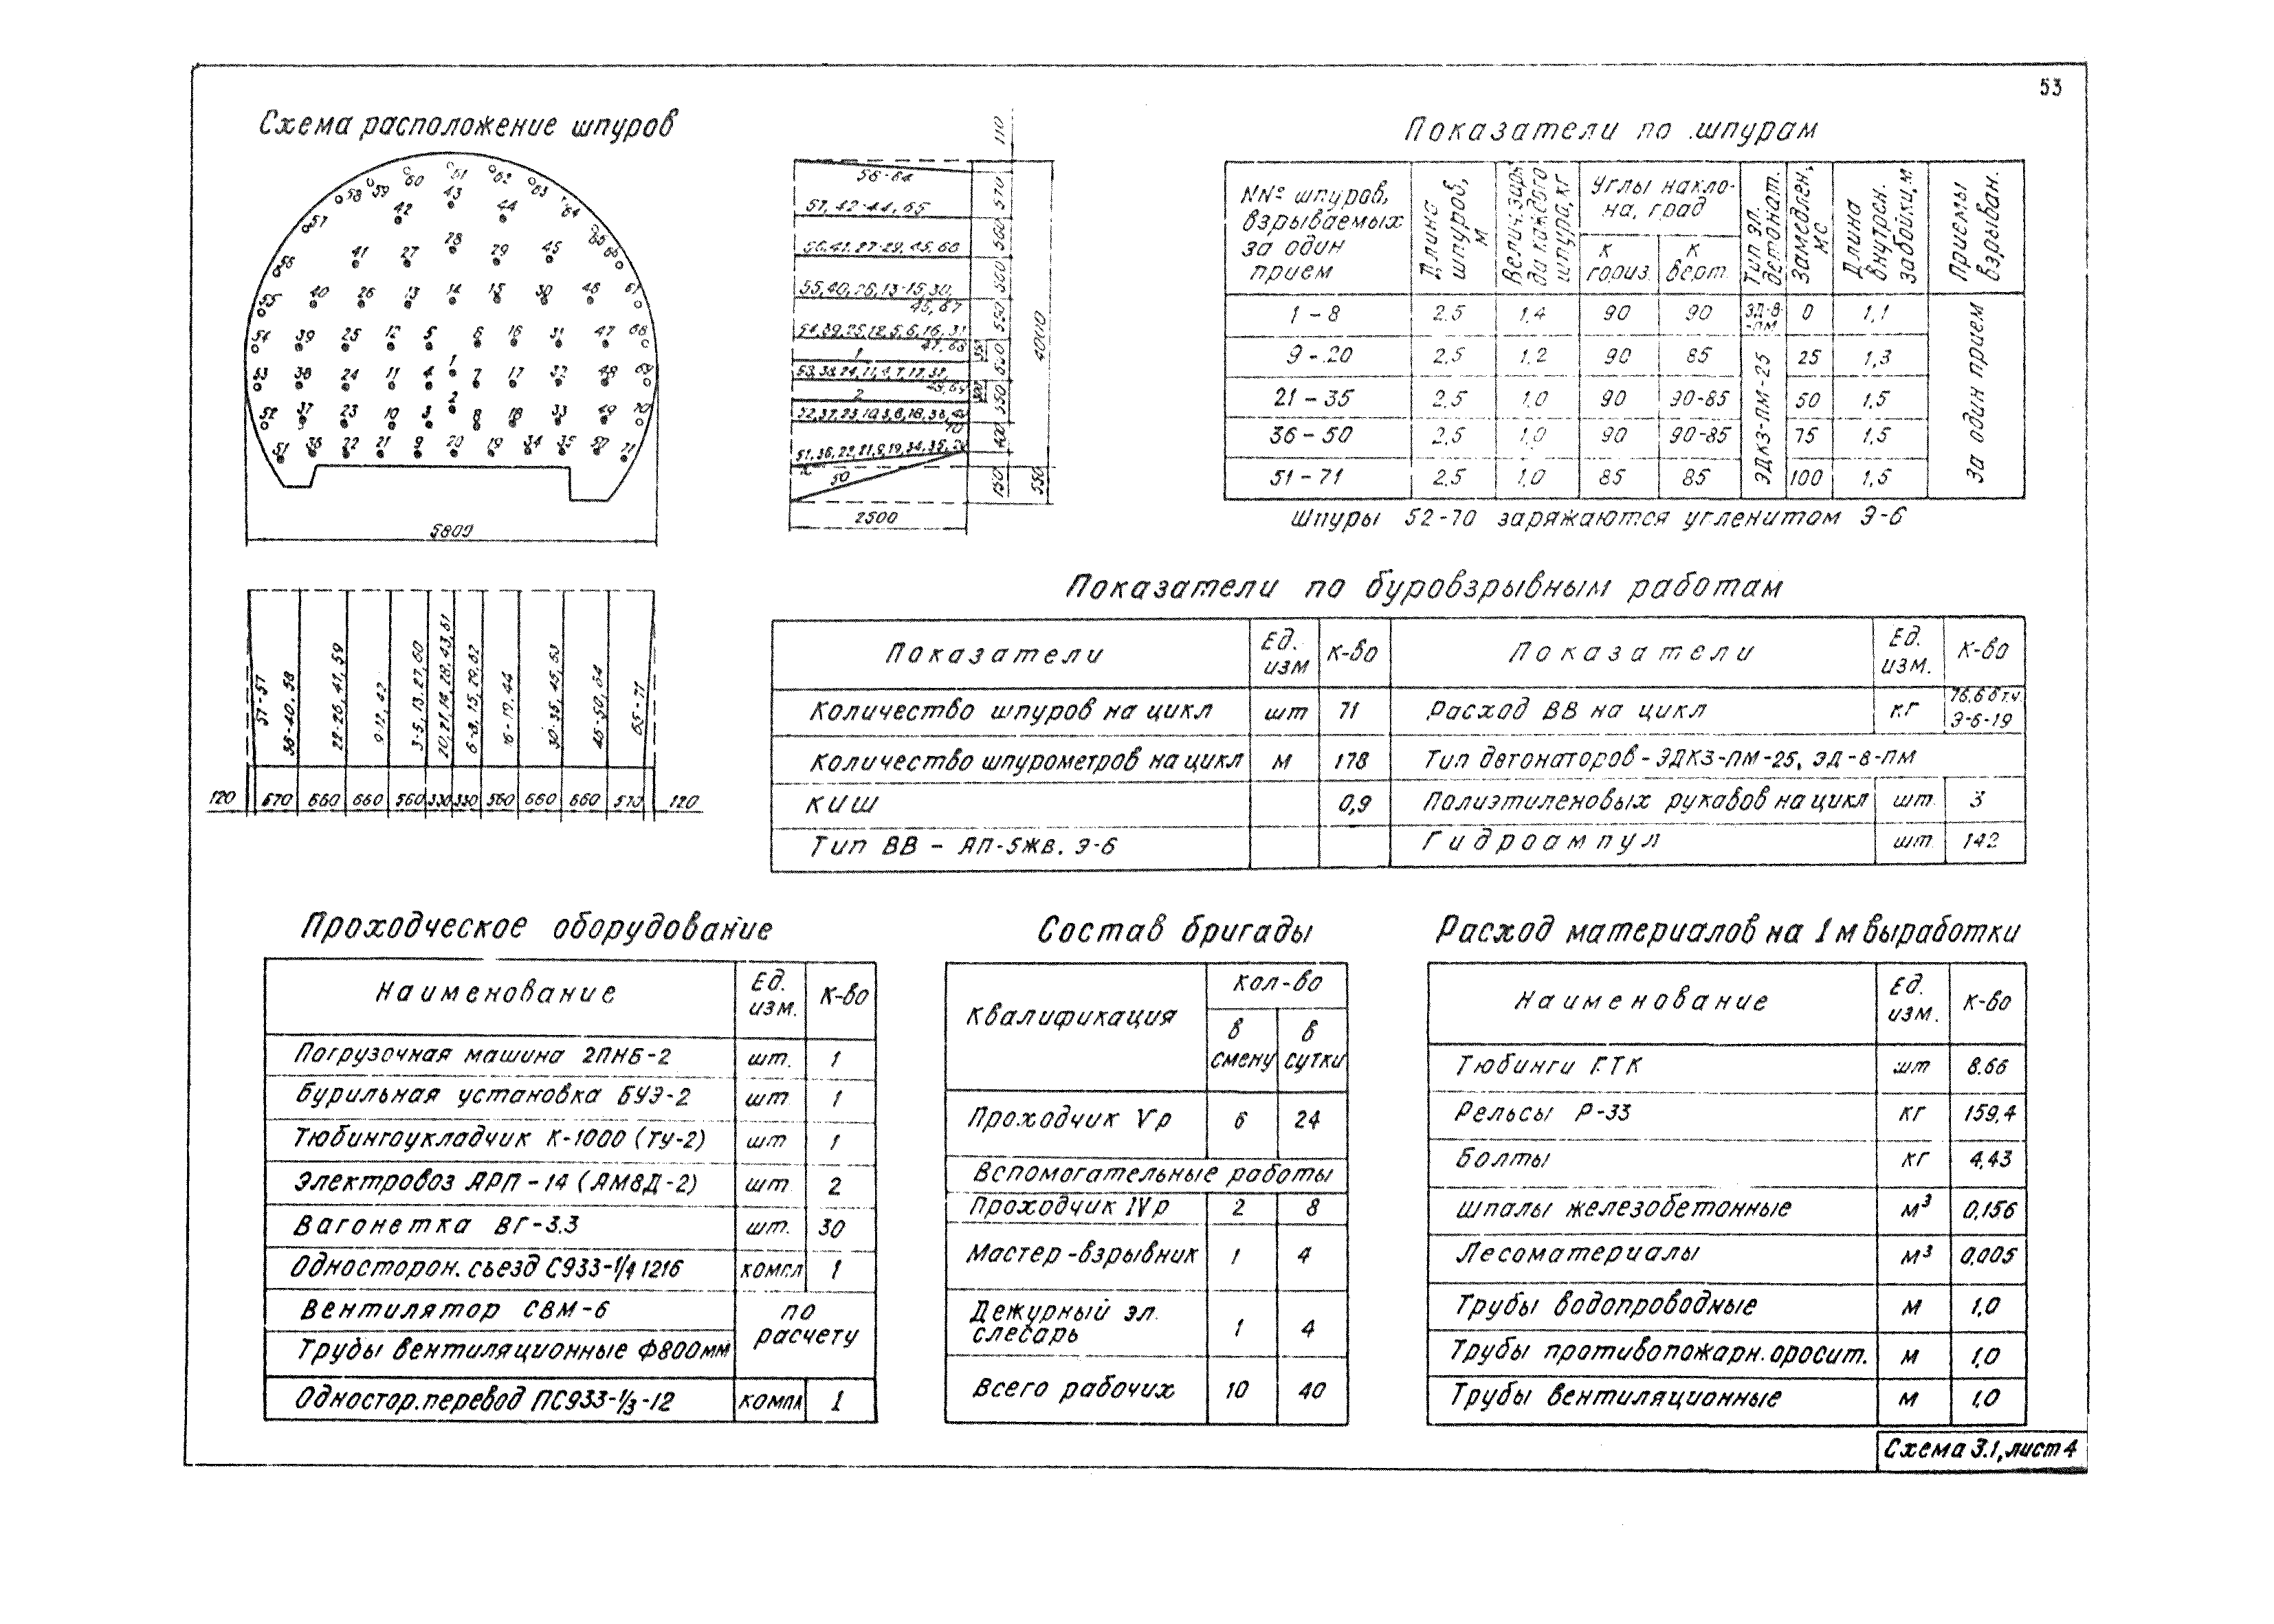 53
Схема расположение шпуров
61
60
62
59
58
63
43
42
44
64
57
65
28
41
27
29
45
66
56
40
26
13
14
15
30
46
67
55
54
39
25
12
5
6
16
31
47
68
1
53
38
24
11
4
7
17
32
48
69
2
52
37
23
10
3
8
18
33
49
70
51
36
22
21
9
20
19
34
35
50
71
5800
56-64
57,42-44,65
56,41,27-29,45,66
55,40,26,13-15,30,
46,67
54,39,25,12,5,6,16,31
47,68
1
53,38,24,11,4,7,17,32,
48,69
2
52,37,23,10,3,8,18,33,49
70
51,36,22,21,9,19,34,35,20
50
110
570
560
560
550
550
400
150
4000
550
2500
51-57
36-40,58
22-26,41,59
9-12,42
3-5,13,27,60
20,21,14,28,43,61
6-8,15,29,62
16-19,44
30-35,45,63
46-50,64
65-71
120 570 660 660 560 330 330 560 660 660 570 120
Показатели по шпурам
NNº шпуров,
взрываемых
за один
прием
Длина
шпуров,
м
Велич. заря
да каждого
шпура, кг
Углы накло-
на, град
к
гориз.
к
верт.
Тип эл.
детонат.
Замедлен,
мс
Длина
внутрен.
забойки, м
Приемы
взрыван.
1 - 8 2,5 1,4 90 90 ЭД-8- 0 1,1
-ПМ
9 - 20 2,5 1,2 90 85 25 1,3
21 - 35 2,5 1,0 90 90-85 50 1,5
36 - 50 2,5 1,0 90 90-85 75 1,5
51 - 71 2,5 1,0 85 85 100 1,5
ЭДКЗ-ПМ-25
За один прием
Шпуры 52-70 заряжаются угленитом Э-6
Показатели по буровзрывным работам
Показатели Ед. изм К-во Показатели Ед. изм. К-во
Количество шпуров на цикл шт 71 Расход ВВ на цикл кг 76.6 в т.ч.
Э-6-19
Количество шпурометров на цикл м 178 Тип детонаторов - ЭДКЗ-ПМ-25, ЭД-8-ПМ
КИШ 0,9 Полиэтиленовых рукавов на цикл шт. 3
Тип ВВ - АП-5ЖВ. Э-6 Гидроампул шт 142
Проходческое оборудование
Наименование Ед. изм. К-во
Погрузочная машина 2ПНБ-2 шт. 1
Бурильная установка БУЭ-2 шт. 1
Тюбингоукладчик К-1000 (ТУ-2) шт 1
Электровоз АРП-14 (АМ8Д-2) шт 2
Вагонетка ВГ-3.3 шт. 30
Односторон. съезд С933-1/4 1216 компл 1
Вентилятор СВМ-6 по
Трубы вентиляционные Ф800мм расчету
Одностор. перевод ПС933-1/3-12 компл 1
Состав бригады
Квалификация Кол-во
в
смену
в
сутки
Проходчик V р 6 24
Вспомогательные работы
Проходчик IV р 2 8
Мастер-взрывник 1 4
Дежурный эл.
слесарь 1 4
Всего рабочих 10 40
Расход материалов на 1 м выработки
Наименование Ед. изм. К-во
Тюбинги ГТК шт 8.66
Рельсы Р-33 кг 159,4
Болты кг 4,43
Шпалы железобетонные м³ 0,156
Лесоматериалы м³ 0,005
Трубы водопроводные м 1,0
Трубы противопожарн. оросит. м 1,0
Трубы вентиляционные м 1,0
Схема 3.1, лист 4